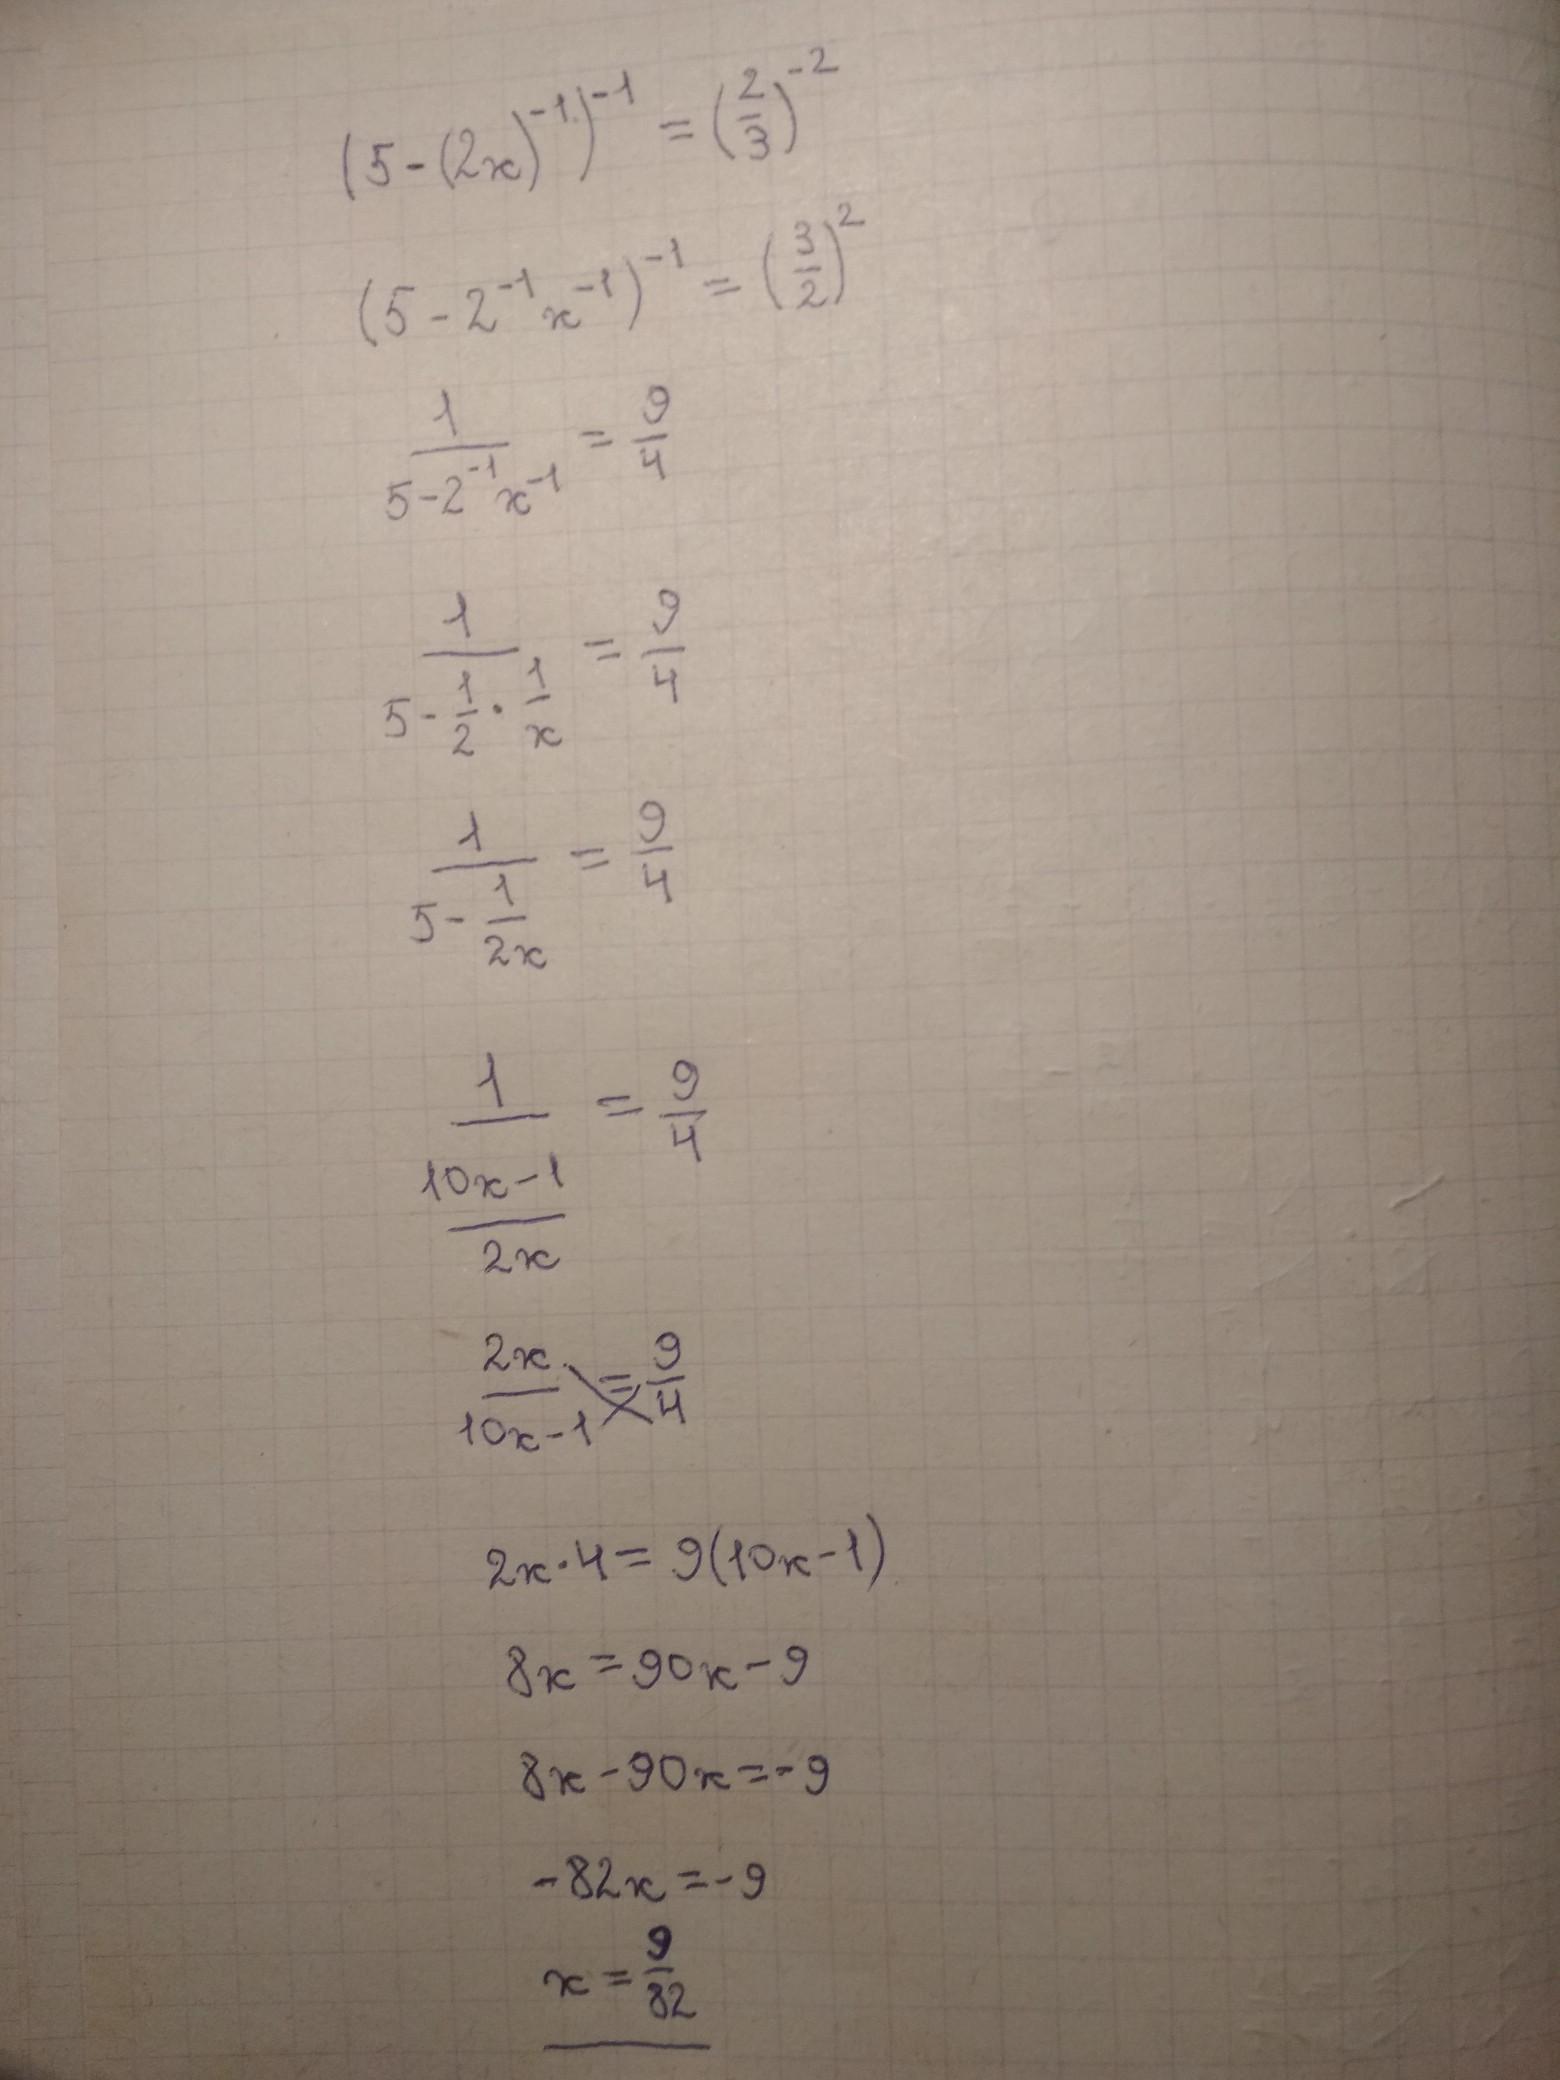 (5-(2x)^-1)^-1 = (2/3)^-2
(5-2^-1 x^-1)^-1 = (3/2)^2
1/(5-2^-1 x^-1) = 9/4
1/(5-1/2·1/x) = 9/4
1/(5-1/2x) = 9/4
1/((10x-1)/2x) = 9/4
2x/(10x-1) = 9/4
2x·4=9(10x-1)
8x=90x-9
8x-90x=-9
-82x=-9
x=9/82